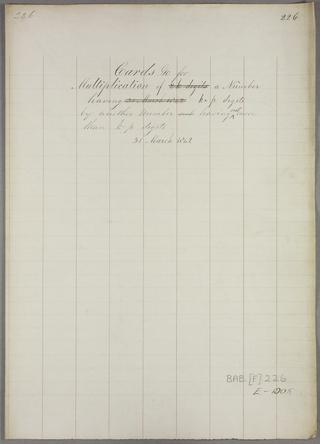 226
226
Cards &c for
Multiplication of digits a Number
having k-p digits
by another Number having not more
than k-p digits
31 March 1842
BAB. [F] 226